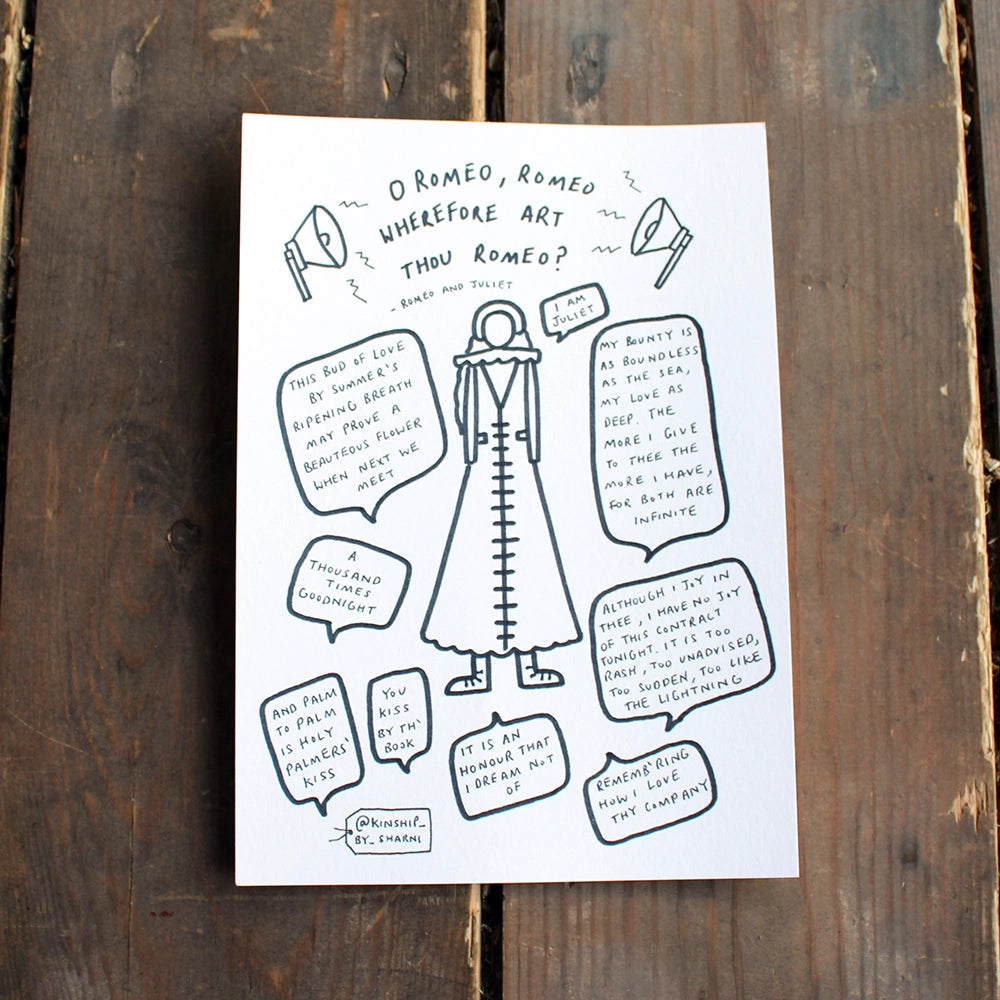 O ROMEO, ROMEO
WHEREFORE ART
THOU ROMEO?
- ROMEO AND JULIET
I AM
JULIET
THIS BUD OF LOVE
BY SUMMER'S
RIPENING BREATH
MAY PROVE A
BEAUTEOUS FLOWER
WHEN NEXT WE
MEET
MY BOUNTY IS
AS BOUNDLESS
AS THE SEA,
MY LOVE AS
DEEP. THE
MORE I GIVE
TO THEE THE
MORE I HAVE,
FOR BOTH ARE
INFINITE
A
THOUSAND
TIMES
GOODNIGHT
ALTHOUGH I JOY IN
THEE, I HAVE NO JOY
OF THIS CONTRACT
TONIGHT. IT IS TOO
RASH, TOO UNADVISED,
TOO SUDDEN, TOO LIKE
THE LIGHTNING
AND PALM
TO PALM
IS HOLY
PALMERS'
KISS
YOU
KISS
BY TH'
BOOK
IT IS AN
HONOUR THAT
I DREAM NOT
OF
REMEMB'RING
HOW I LOVE
THY COMPANY
@KINSHIP_
BY_SHARNI